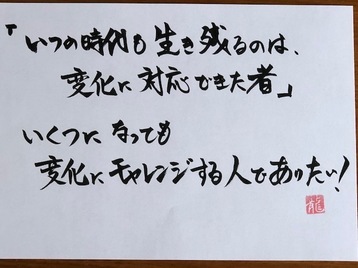 「いつの時代も生き残るのは、
変化に対応できた者」
いくつになっても
変化にチャレンジする人でありたい!
龍